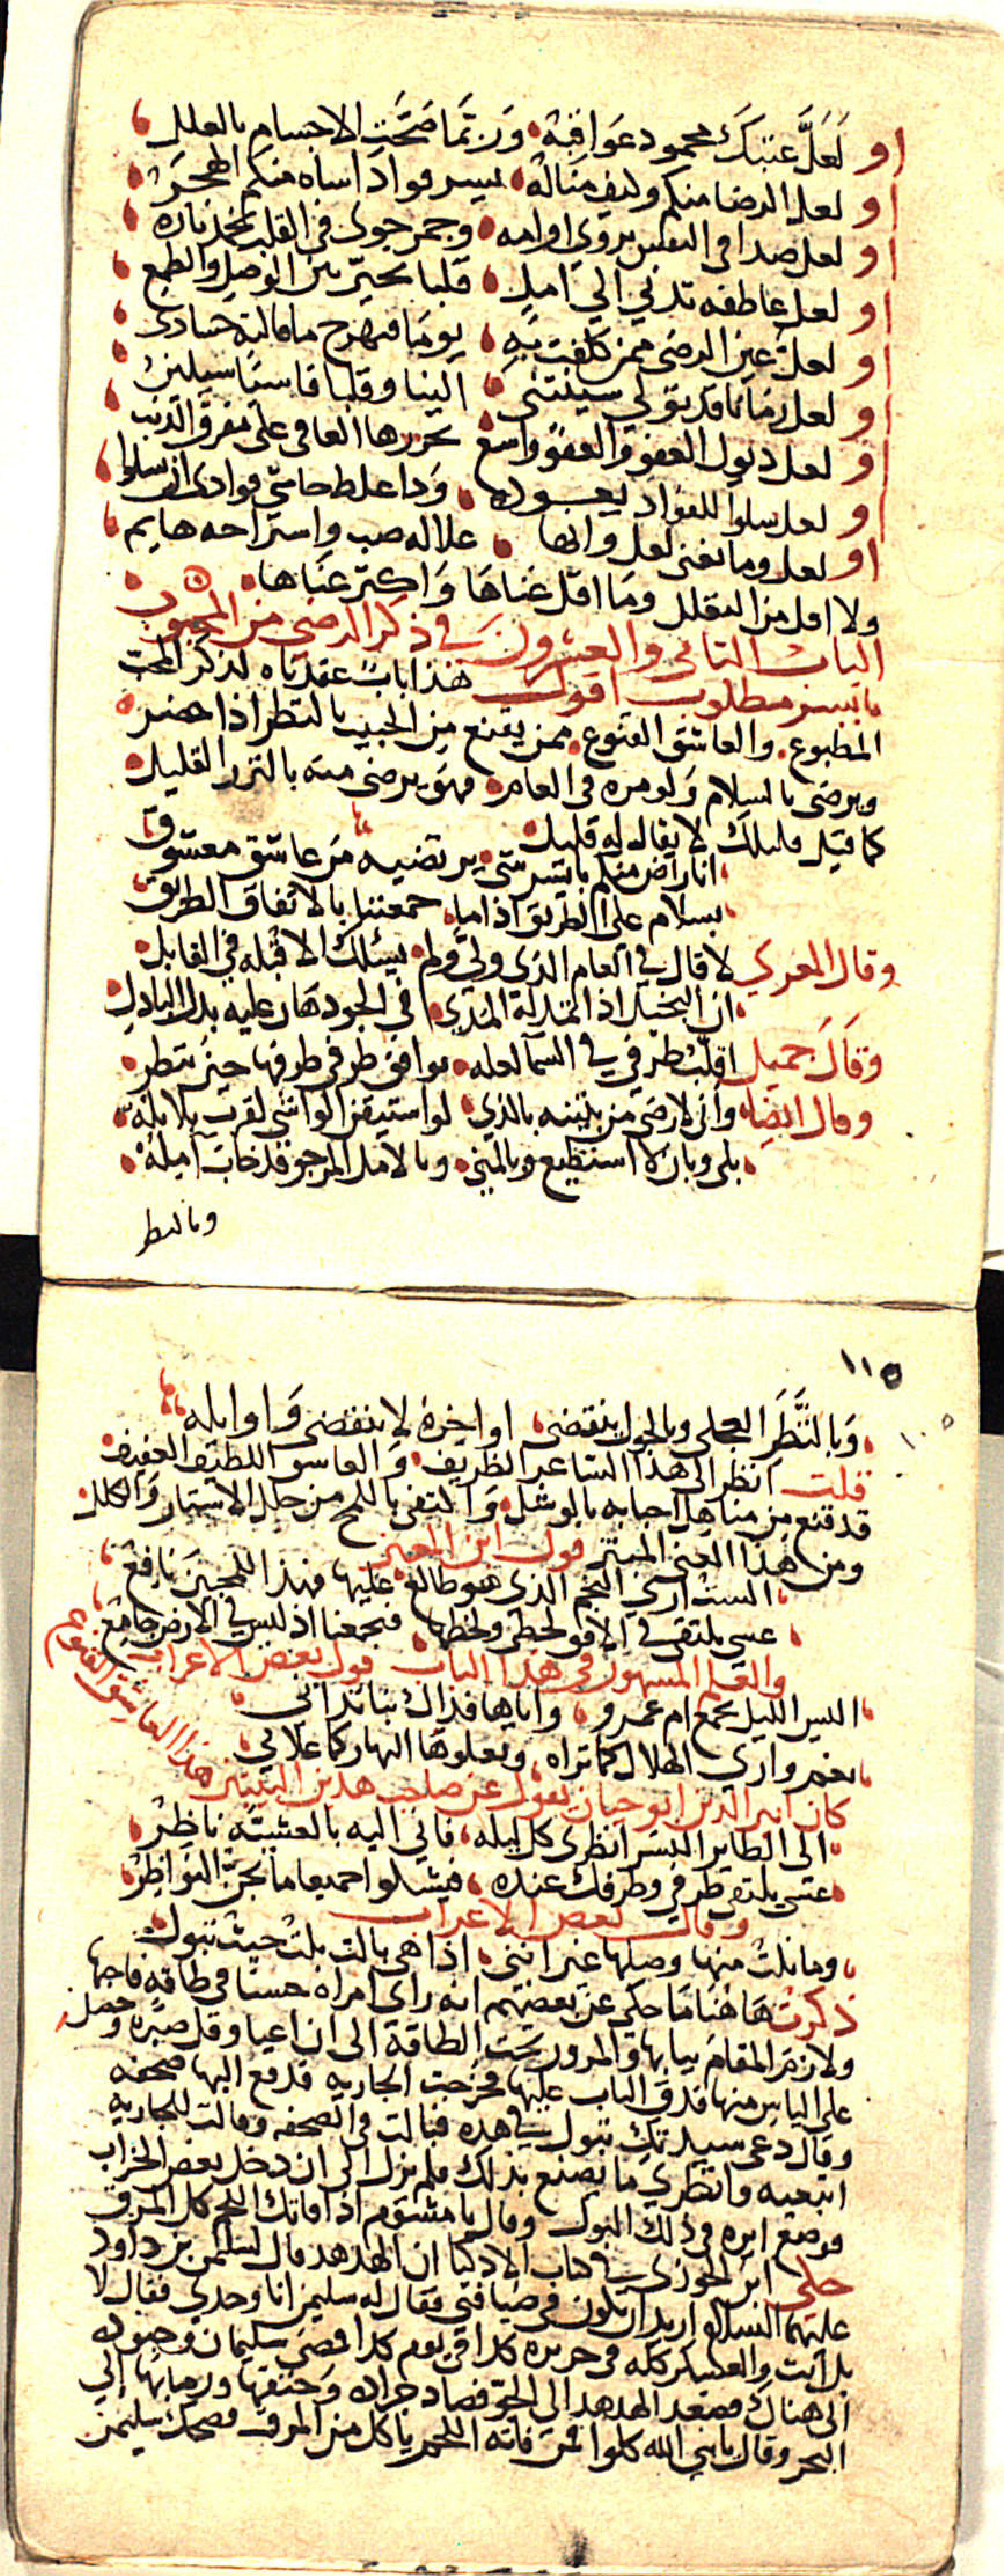 او لَعَلَّ عتبكَ محمود عَوَاقبهُ وَربّمَا صَحَّت الاجسام بالعلل
او لعل الرضا منكم وكيف مناله يسر فوادا اساه منكم الهجر
او لعل صدا في النفس يروي اوامه وجمر جوى في القلب يخمد ناره
او لعل عاطفه تدني الي امل قلبا تحيّر بين الوصل والطمع
او لعل عين الرضى ممن كلفت به يومًا
او لعل زمانا قد بقي لي سينثني الينا وقلبا قاسيًا سيلين
او لعل ذيول العفو والعفو واسع يجررها العافي على مفرق الذنب
او لعل سلوا للفؤاد يعوده
او لعل وما تغني لعل وانها علاله صب واستراحه هايم
ولا اقل من التقلل وما اقل غناها وَاكثر عَنَاها
الباب الثاني والعشرون في ذكر الرضى من المحبوب
بايسر مطلوب اقول هَذا بابٌ عقدناه لذكر المحب
المطبوع والعاشق القنوع ممن يقنع من الحبيب بالنظر اذا حضر
ويرضى بالسلام وَلو مره في العام فهو يرضى منه بالنزر القليل
كما قيل قليلك لا يقال له قليل
انا راض منكم بايسر شي يرتضيه مَن عاشق معشوق
بسلام على الطريق اذا ما جمعتنا بالاتفاق الطريق
وقال المعري لاقاك في العام الذي ولّى ولم يسئلك الا قبله في القابل
ان البخيل اذا تمد له المدى في الجود هان عليه بذل الباذل
وَقَالَ جميل اقلّب طرفي في السمآ لعله يوافق طرفي طرفها حين تنظر
وقال ايضا واني لارضى من بثينه بالذي لو استيقن الواشي لقرت بلابله
بلى وبان لا استطيع وبالمنى وبالامل المرجو قد خاب آمله
وبالنظر
١١٥
وَبالنَّظرَ العجلى وبالحول ينقضي اواخره لا ينقضى وَاوايله
قلت انظر الى هذا الشاعر الظريف وَالعاشق اللطيف العفيف
قد قنع من مناهل احبابه بالوشل وَاكتفى باللمح من خلل الاستار وَالكلل
ومن هذا المعنى المبتز قول ابن المعتز
الست ارى النجم الذي هو طالع عليها فهذا للمحبين نافع
عسى يلتقي في الافق لحظى ولحظها فيجمعنا اذ ليس في الارض جامع
والعلم المشهور في هذا الباب قول بعض الاعراب
اليس الليل يجمع ام عمرو وايانا فذاك بنا تداني
نعم واري الهلال كما تراه ويعلوها النهار كما علاني
كان اثير الدين ابو حيان يقول عن صاحب هذين البيتين هذا العاشق القنوع
الى الطاير النسر انظرى كل ليله فاني اليه بالعشيّه ناظر
عسى يلتقي طرفي وطرفك عنده فنشكوا جميعا ما تجنّ النواظر
وقال بعض الاعراب
وما نلت منها وصلها غير انني اذا هي بالت بلت حيث تبول
ذكرت هَاهنا مَا حكي عن بعضهم انه راى امراه حسنا في طاقه فاحبها
ولازم المقام ببابها والمرور تحت الطاقة الى ان اعيا وقل صبره وحصل
على الياس منها فدق الباب عليها فخرجت الجاريه فدفع اليها صحفه
وقال دعى سيدتك تبول في هذه فبالت في الصحفه وقالت للجاريه
اتبعيه وانظري ما يصنع بذلك فلم يزل الى ان دخل بعض الخراب
فوضع ايره في ذلك البول وقال يا مشئوم اذا فاتك اللحم كل المرق
حكى ابن الجوزي في كتاب الاذكيا ان الهدهد قال لسليمن بن داود
عليهما السلام اريد ان تكون في ضيافتي فقال له سليمن انا وحدي فقال لا
بل انت والعسكر كله في جزيره كذا في يوم كذا فمضى سليمان وجنوده
الى هناك فصعد الهدهد الى الجو فصاد جراده وَخنقها ورما بها الى
البحر وقال يا نبي الله كلوا فمن فاته اللحم ياكل من المرق فضحك سليمن